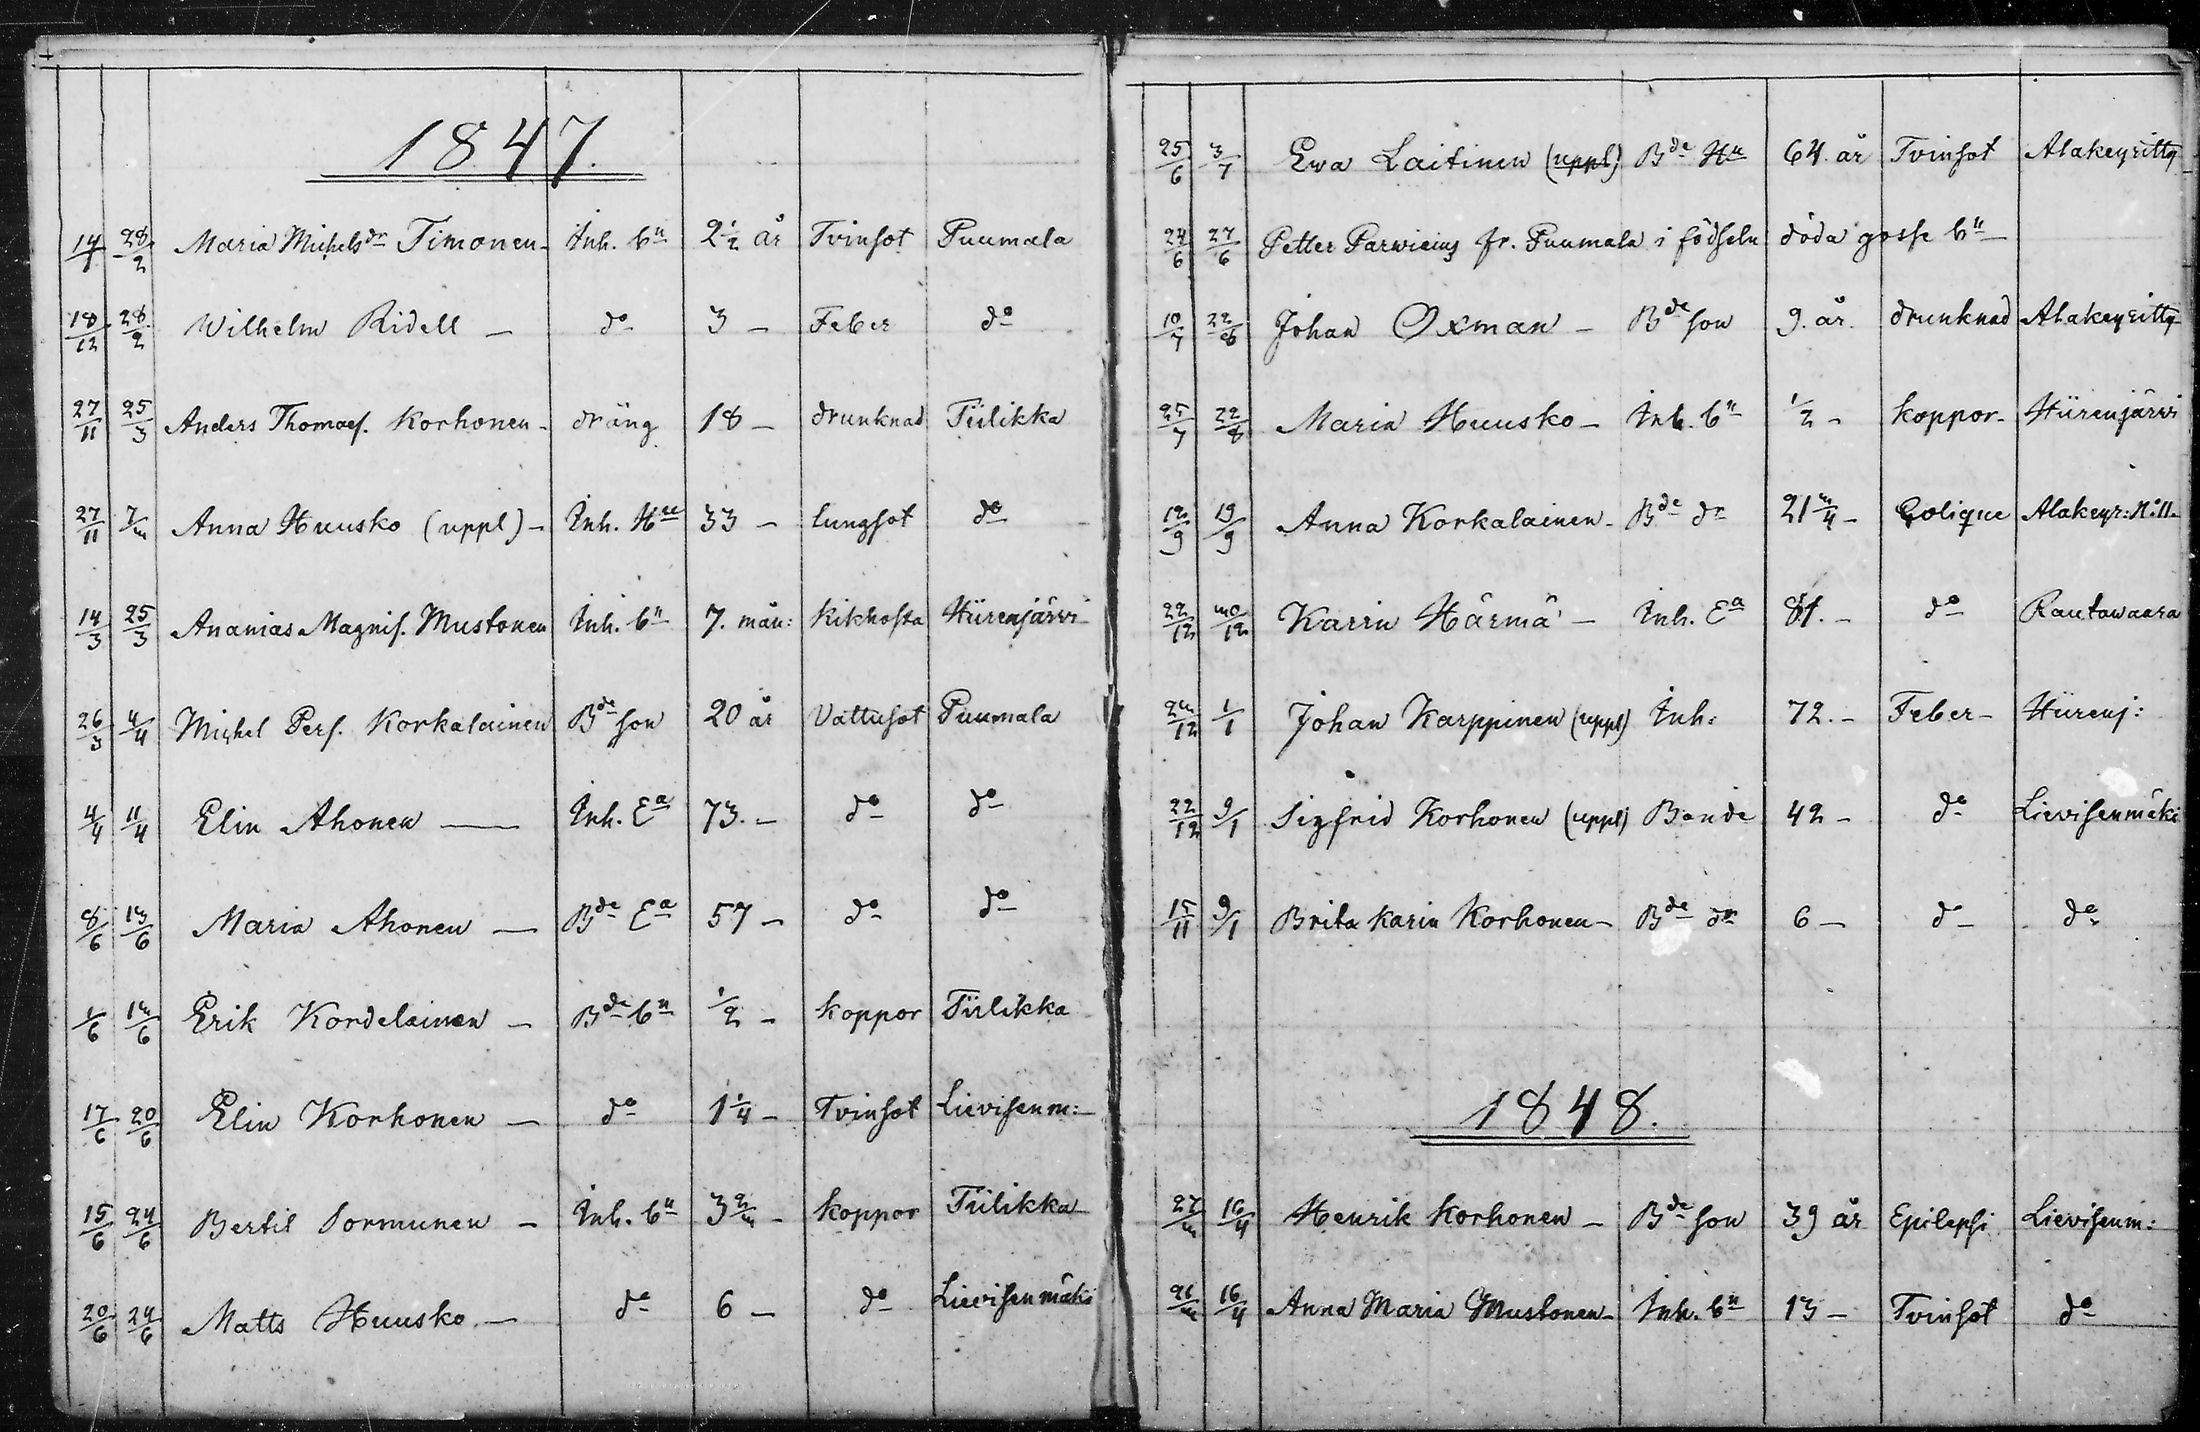 1847.
14/1 28/2 Maria Michelsdr Timonen - Inh. bn 2 1/2 år Tvinsot Puumala
18/12 28/2 Wilhelm Ridell - do 3 - Feber do
27/11 25/3 Anders Thomass. Korhonen - dräng 18 - drunknad Tiilikka
27/11 Anna Huusko (uppl) - Inh. Hu 33 - lungsot do
14/3 25/3 Ananias Magnis. Mustonen Inh. bn 7. mån: kikhosta Hiirenjärvi
26/3 4/4 Michel Pers. Korkalainen Bde son 20 år Vattusot Puumala
4/4 11/4 Elin Ahonen - Inh. Ea 73. - do do
8/6 13/6 Maria Ahonen - Bde Ea 57 - do do
1/6 13/6 Erik Kordelainen - Bde bn 1/2 - koppor Tiilikka
17/6 20/6 Elin Korhonen - do 1 1/4 - Tvinsot Lievisenm:
15/6 24/6 Bertil Sormunen - Inh. bn koppor Tiilikka
20/6 24/6 Matts Huusko. - do 6 - do Lievisenmäki
25/6 3/7 Ewa Laitinen (uppl) Bde Hu 64. år Tvinsot Alakeyritty
24/6 27/6 Petter Parwicius fr. Puumala i födseln döda gosse bn
10/7 22/8 Johan Oxman - Bde son 9. år. drunknad Alakeyritty
25/7 22/8 Maria Huusko - Inh. bn 1/2 - koppor - Hiirenjärvi
12/9 19/9 Anna Korkalainen - Bde dr Colique Alakeyr: N:o 11.
22/12 Karin Härmä - Inh. Ea 81. - do Rautawaara
1/1 Johan Karppinen (uppl) Inh: 72. - Feber - Hiirenj:
22/12 9/1 Sigfrid Korhonen (uppl) Bonde 42 - do Lievisenmäki
15/11 9/1 Brita Karin Korhonen - Bde dr 6 - do do
1848.
16/4 Henrik Korhonen - Bde son 39 år Epilepsi Lievisenm:
16/4 Anna Maria Mustonen - Inh. bn 13 - Tvinsot do